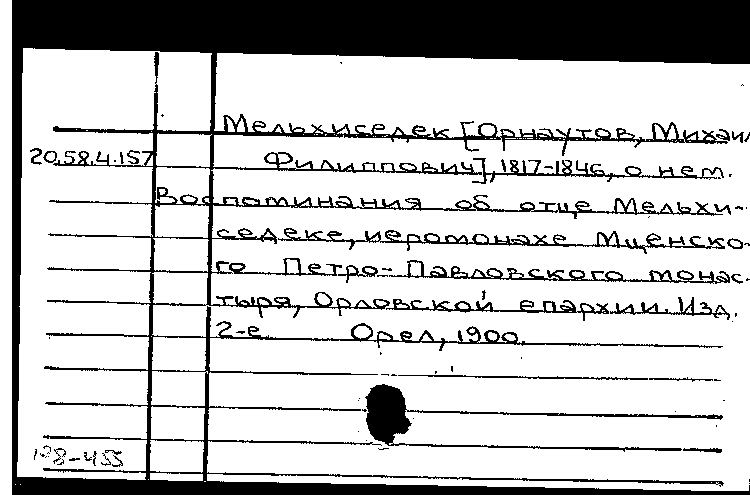 Мельхиседек [Орнаутов, Михаил
20.58.4.157 Филиппович], 1817-1846, о нем.
Воспоминания об отце Мельхи-
седеке, иеромонахе Мценско-
го Петро-Павловского монас-
тыря, Орловской епархии. Изд.
2-е Орел, 1900.
128-455